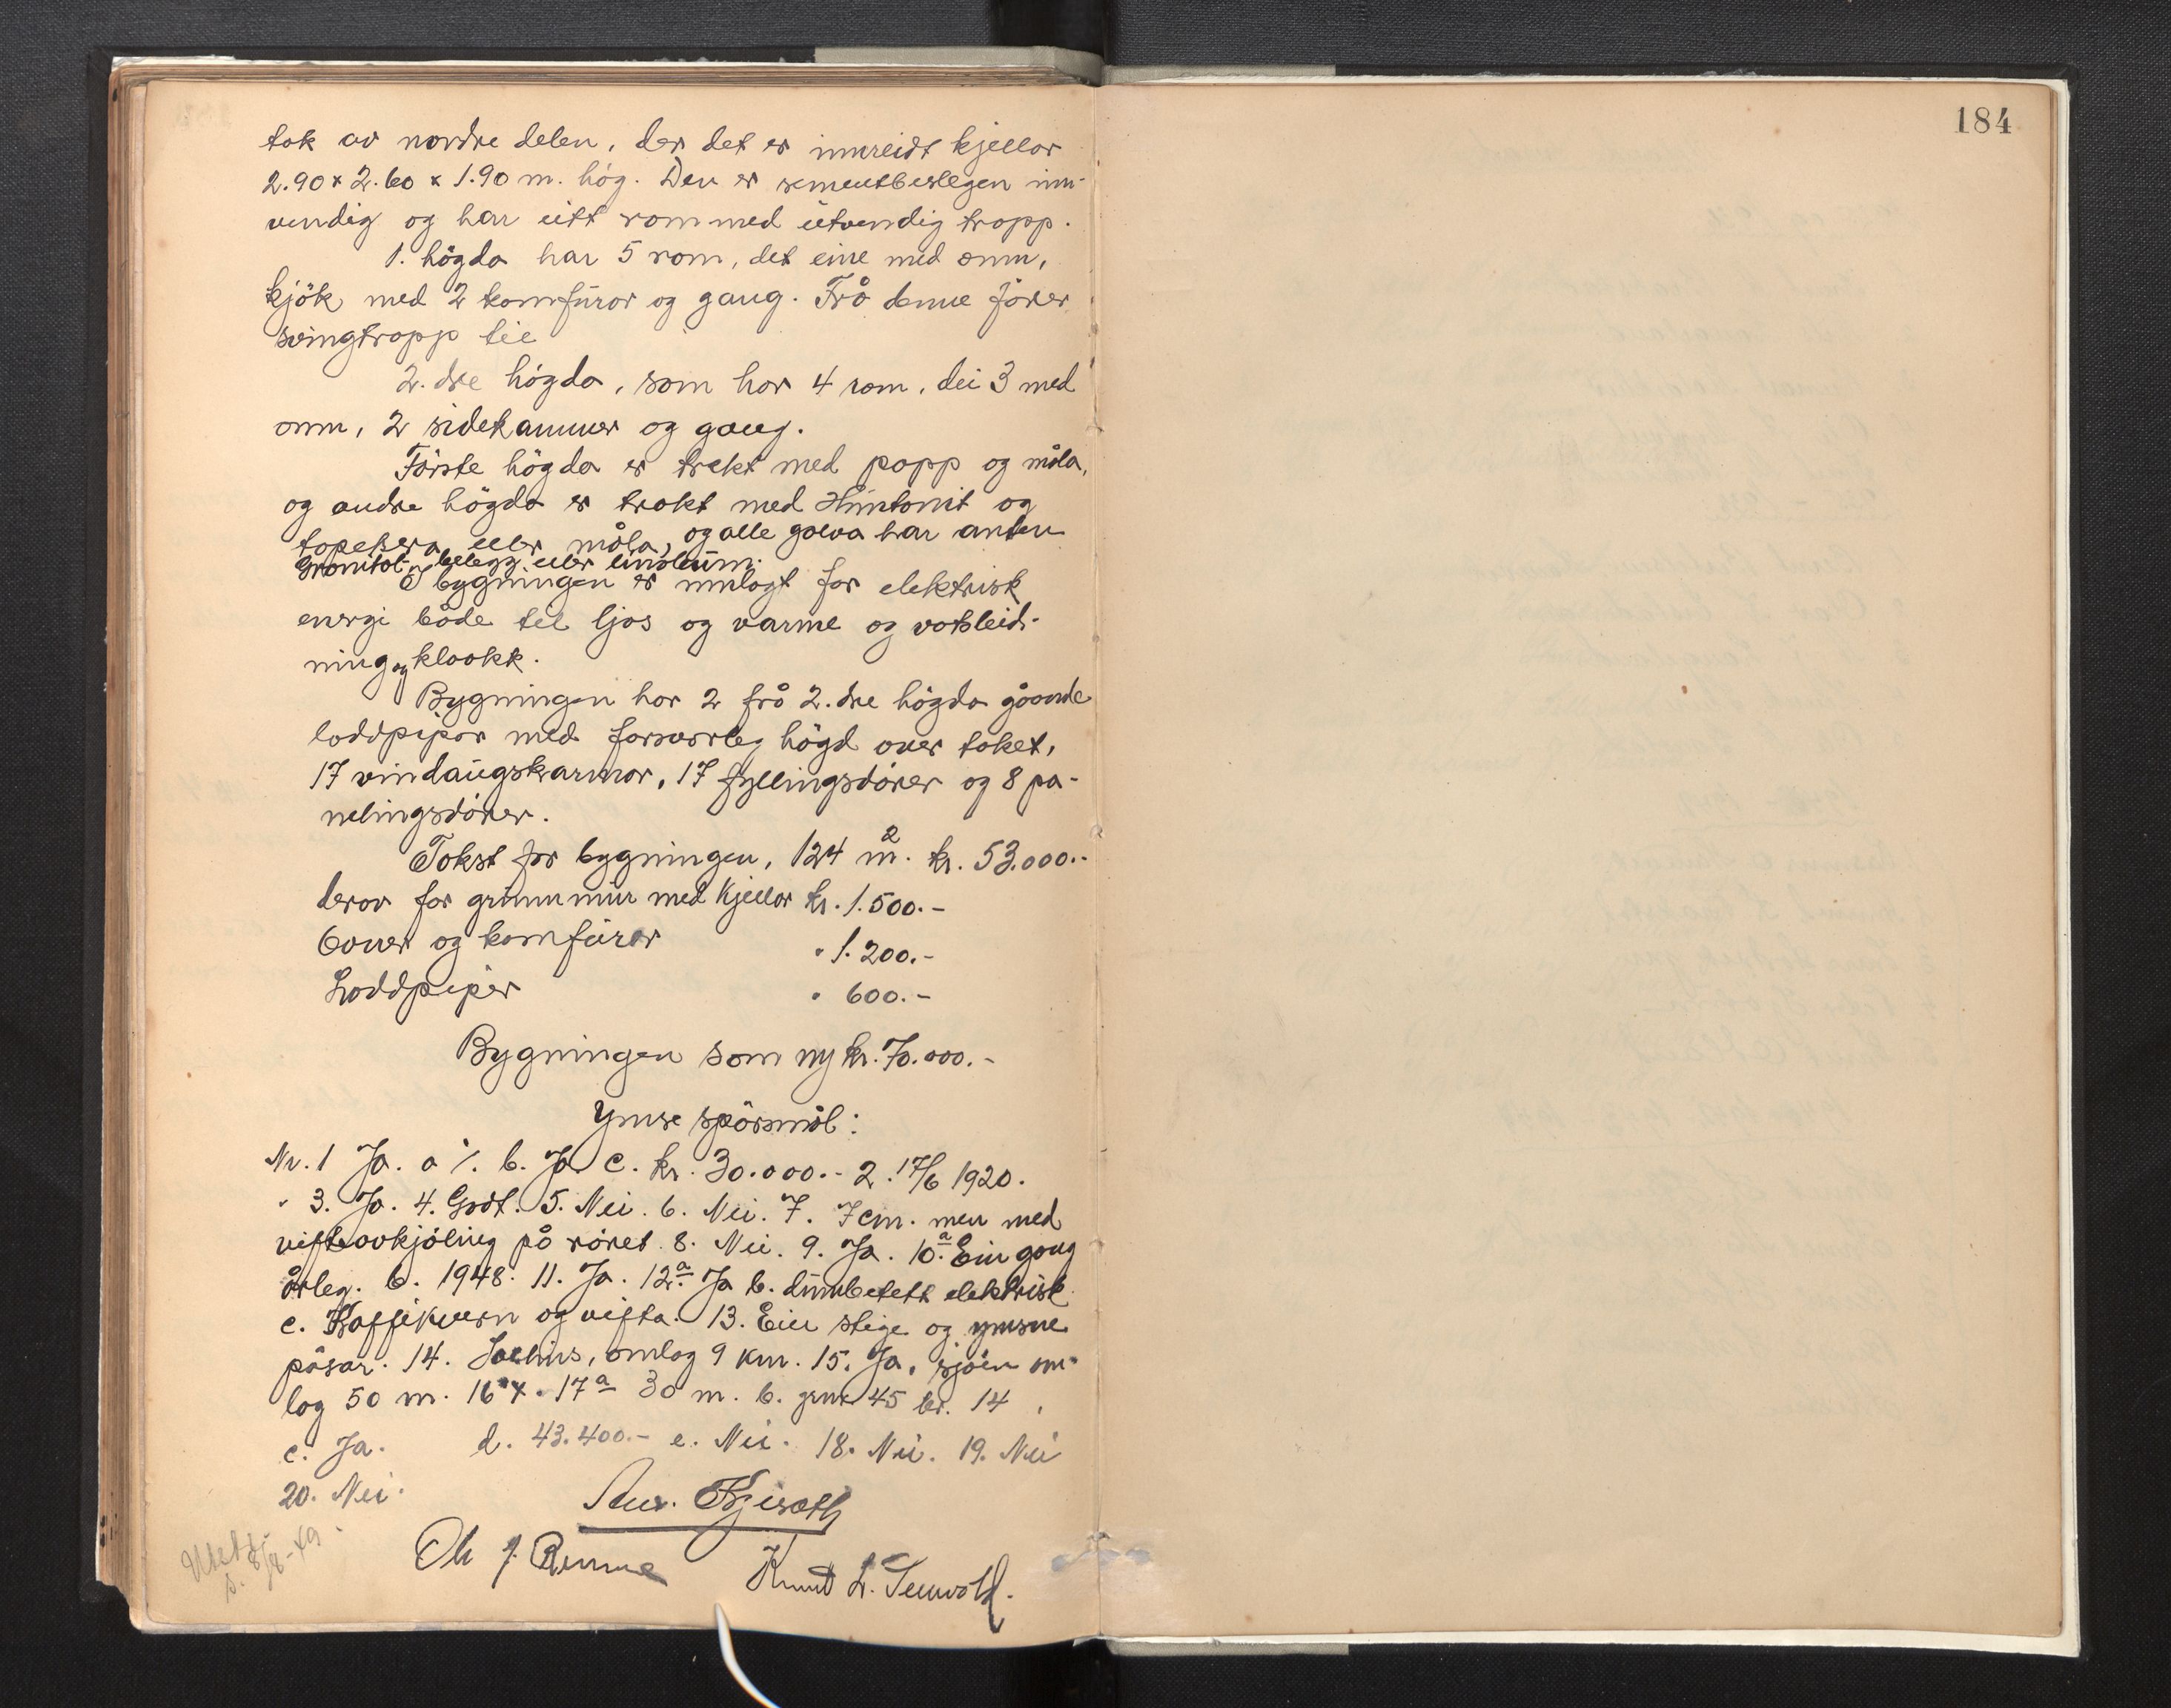 184
tak av nordre delen, der det er innreidt kjellar
2.90 x 2.60 x 1.90 m. høg. Den er sementbeslegen inn-
vendig og har eitt rom med utvendig tropp.
1. høgda har 5 rom, det eine med omn,
kjøk med 2 komfurar og gang. Frå denne fører
svingtropp til
2. dre høgda, som har 4 rom, dei 3 med
omn, 2 sidekammer og gang.
Förste høgda er trekt med papp og måla,
og andre høgda er trekt med Huntonit og
tapetsera eller måla, og alle golva har anten
Granitol-belegg eller linoleum.
I bygningen er innlagt for elektrisk
energi både til ljos og varme og vassleid-
ning og kloakk.
Bygningen har 2 frå 2. dre høgda gåande
loddpipor med forsvarleg høgd over taket,
17 vindaugskarmar, 17 fyllingsdører og 8 pa-
nelingsdører.
Takst for bygningen, 124 m². kr. 53.000.-
derav for grunnmur med kjellar kr. 1.500.-
6 omner og komfurar " 1.200.-
Loddpiper " 600.-
Bygningen som ny kr. 70.000.-
Ymse spörsmål:
Nr. 1 Ja. a ./. b. Ja. c. kr. 30.000.- 2. 17/6 1920.
" 3. Ja. 4. Godt. 5. Nei. 6. Nei. 7. 7 cm. men med
vifteavkjöling på röret. 8. Nei. 9. Ja. 10.a Ein gong
årleg. b. 1948. 11. Ja. 12.a Ja b. elektrisk
c. Kaffikvern og vifta. 13. Ein stige og ymsne
pösar. 14. omlag 9 km. 15. Ja, sjöen om-
lag 50 m. 16 x. 17a 30 m. b. gnr 45 br. 14,
c. Ja. d. 43.400.- e. Nei. 18. Nei. 19. Nei
20. Nei.
Ole J. Knut L.
8/8-49